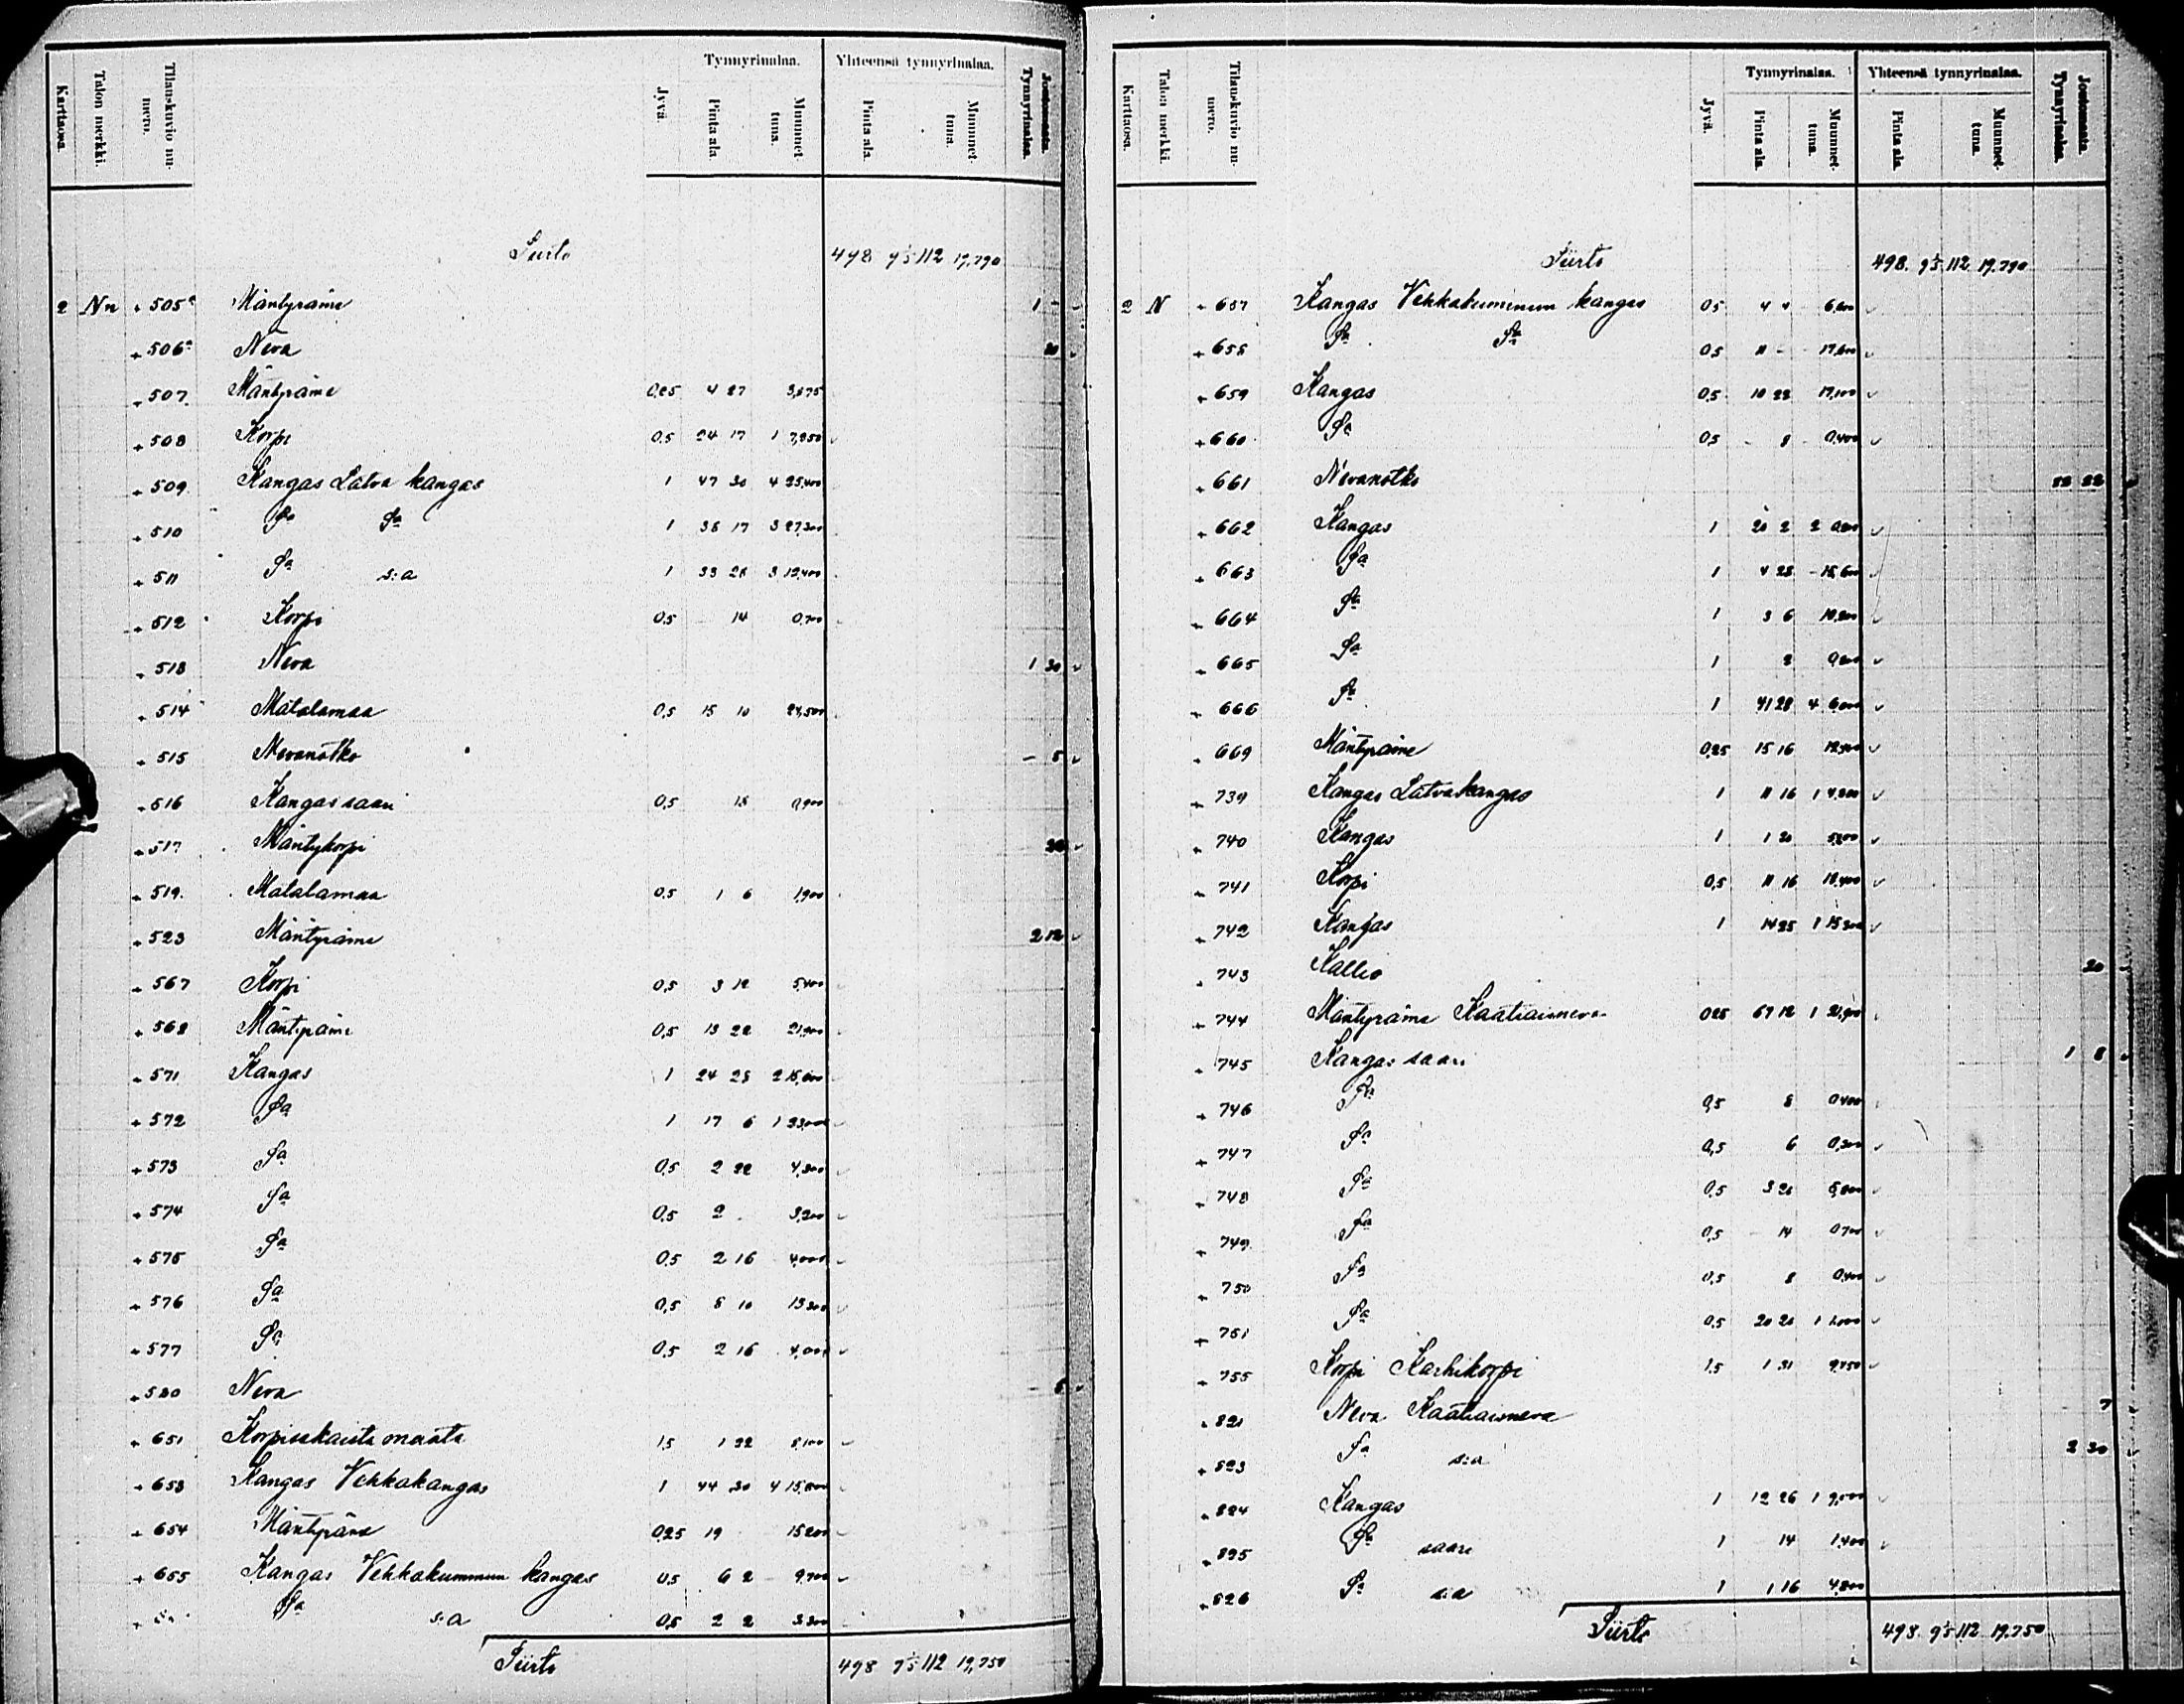 Karttaosa. Talon merkki. Tilauskuvio nu-mero. Jyvä. Tynnyrinalaa. Pinta ala. Muunnet-tuna. Yhteensä tynnyrinalaa. Pinta ala. Muunnet-tuna. Joutomaata. Tynnyrinalaa.
Siirto 498 9 1/5 112 19,790
2 Nn 505a Mäntyräme 1 -
506a Neva 20
507 Mäntyräme 0,25 4 27 3,875
508 Korpi 0,5 24 17 1 7,250
509 Kangas Latva kangas 1 47 30 4 25,400
510 Sa Sa 1 38 17 3 27,300
511 Sa s:a 1 33 28 3 12,400
512 Korpi 0,5 14 0,700
513 Neva 1 30
514 Matalamaa 0,5 15 10 24,500
515 Nevanotko - 5
516 Kangassaari 0,5 18 0,900
517 Mäntykorpi 20
519 Matalamaa 0,5 1 6 1,900
523 Mäntyräme 2 12
567 Korpi 0,5 3 12 5,400
568 Mäntyräme 0,5 13 22 21,900
571 Kangas 1 24 28 2 15,600
572 Sa 1 17 6 1 23,000
573 Sa 0,5 2 22 4,300
574 Sa 0,5 2 - 3,200
575 Sa 0,5 2 16 4,000
576 Sa 0,5 8 10 13,300
577 Sa 0,5 2 16 4,000
580 Neva - 8
651 1,5 1 22 8,100
653 Kangas Vehkakangas 1 44 30 4 15,000
654 Mäntyräme 0,25 19 15,200
655 Kangas Vehkakummun kangas 0,5 6 2 9,700
Sa s:a 0,5 2 2 3,300
Siirto 498 9 1/5 112 19,750
Karttaosa. Talon merkki. Tilauskuvio nu-mero. Jyvä. Tynnyrinalaa. Pinta ala. Muunnet-tuna. Yhteensä tynnyrinalaa. Pinta ala. Muunnet-tuna. Joutomaata. Tynnyrinalaa.
Siirto 498 9 1/5 112 19,790
2 N 657 Kangas Vehkakummun kangas 0,5 4 4 6,600
658 Sa Sa 0,5 11 - 17,600
659 Kangas 0,5 10 22 17,100
660 Sa 0,5 - 8 0,400
661 Nevanotko 22 22
662 Kangas 1 20 2 2 0,200
663 Sa 1 4 28 15,600
664 Sa 1 3 6 10,200
665 Sa 1 2 0,200
666 Sa 1 41 28 4 6,000
669 Mäntyräme 0,25 15 16 12,400
739 Kangas Latvakangas 1 11 16 1 4,800
740 Kangas 1 1 20 5,200
741 Korpi 0,5 11 16 18,400
742 Kangas 1 14 25 1 15,300
743 Kallio 20
744 Mäntyräme Kaatiaisneva 0,25 67 12 1 21,900
745 Kangassaari 1 8
746 Sa 0,5 8 0,400
747 Sa 0,5 6 0,300
748 Sa 0,5 3 20 5,800
749 Sa 0,5 14 0,700
750 Sa 0,5 8 0,400
751 Sa 0,5 20 20 1 1,000
755 Korpi Karhikorpi 1,5 1 31 9,450
821 Neva Kaatiaisneva 7
823 Sa s:a 2 30
824 Kangas 1 12 26 1 9,000
825 Sa saari 1 14 1,400
826 Sa s:a 1 1 16 4,800
Siirto 498 9 1/5 112 19,750